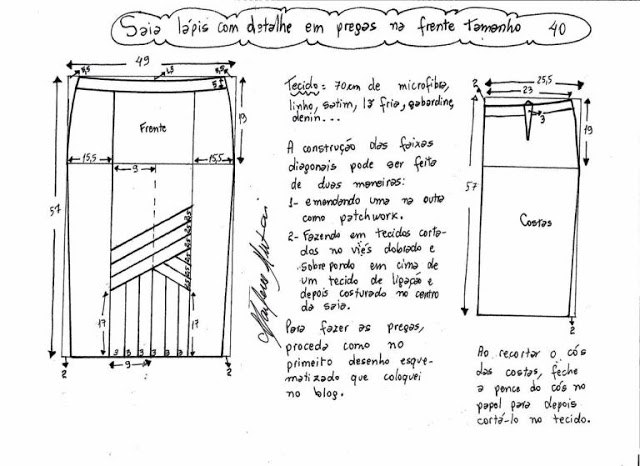 Saia lápis com detalhe em pregas na frente tamanho 40
49
3,5
1,3
3,5
5
Frente
19
15,5
15,5
9
57
17
17
3 3 3 3 3
9
2
2
Tecido = 70cm de microfibra,
linho, satim, lã fria, gabardine,
denin...
A construção das faixas
diagonais pode ser feita
de duas maneiras:
1- emendando uma na outra
como patchwork.
2- Fazendo em tecidos corta-
dos no viés dobrado e
sobrepondo em cima de
um tecido de ligação e
depois costurado no centro
da saia.
Para fazer as pregas,
proceda como no
primeito desenho esque-
matizado que coloquei
no blog.
2
25,5
23
3
19
57
Costas
2
Ao recortar o cós
das costas, feche
a pence do cós no
papel para depois
cortá-lo no tecido.